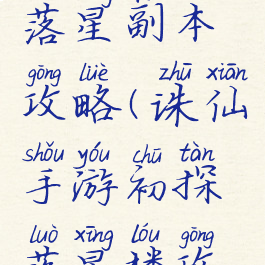 落星副本
gōng lüè zhū xiān
攻略(诛仙
shǒu yóu chū tàn
手游初探
luò xīng lóu gōng
落星楼攻